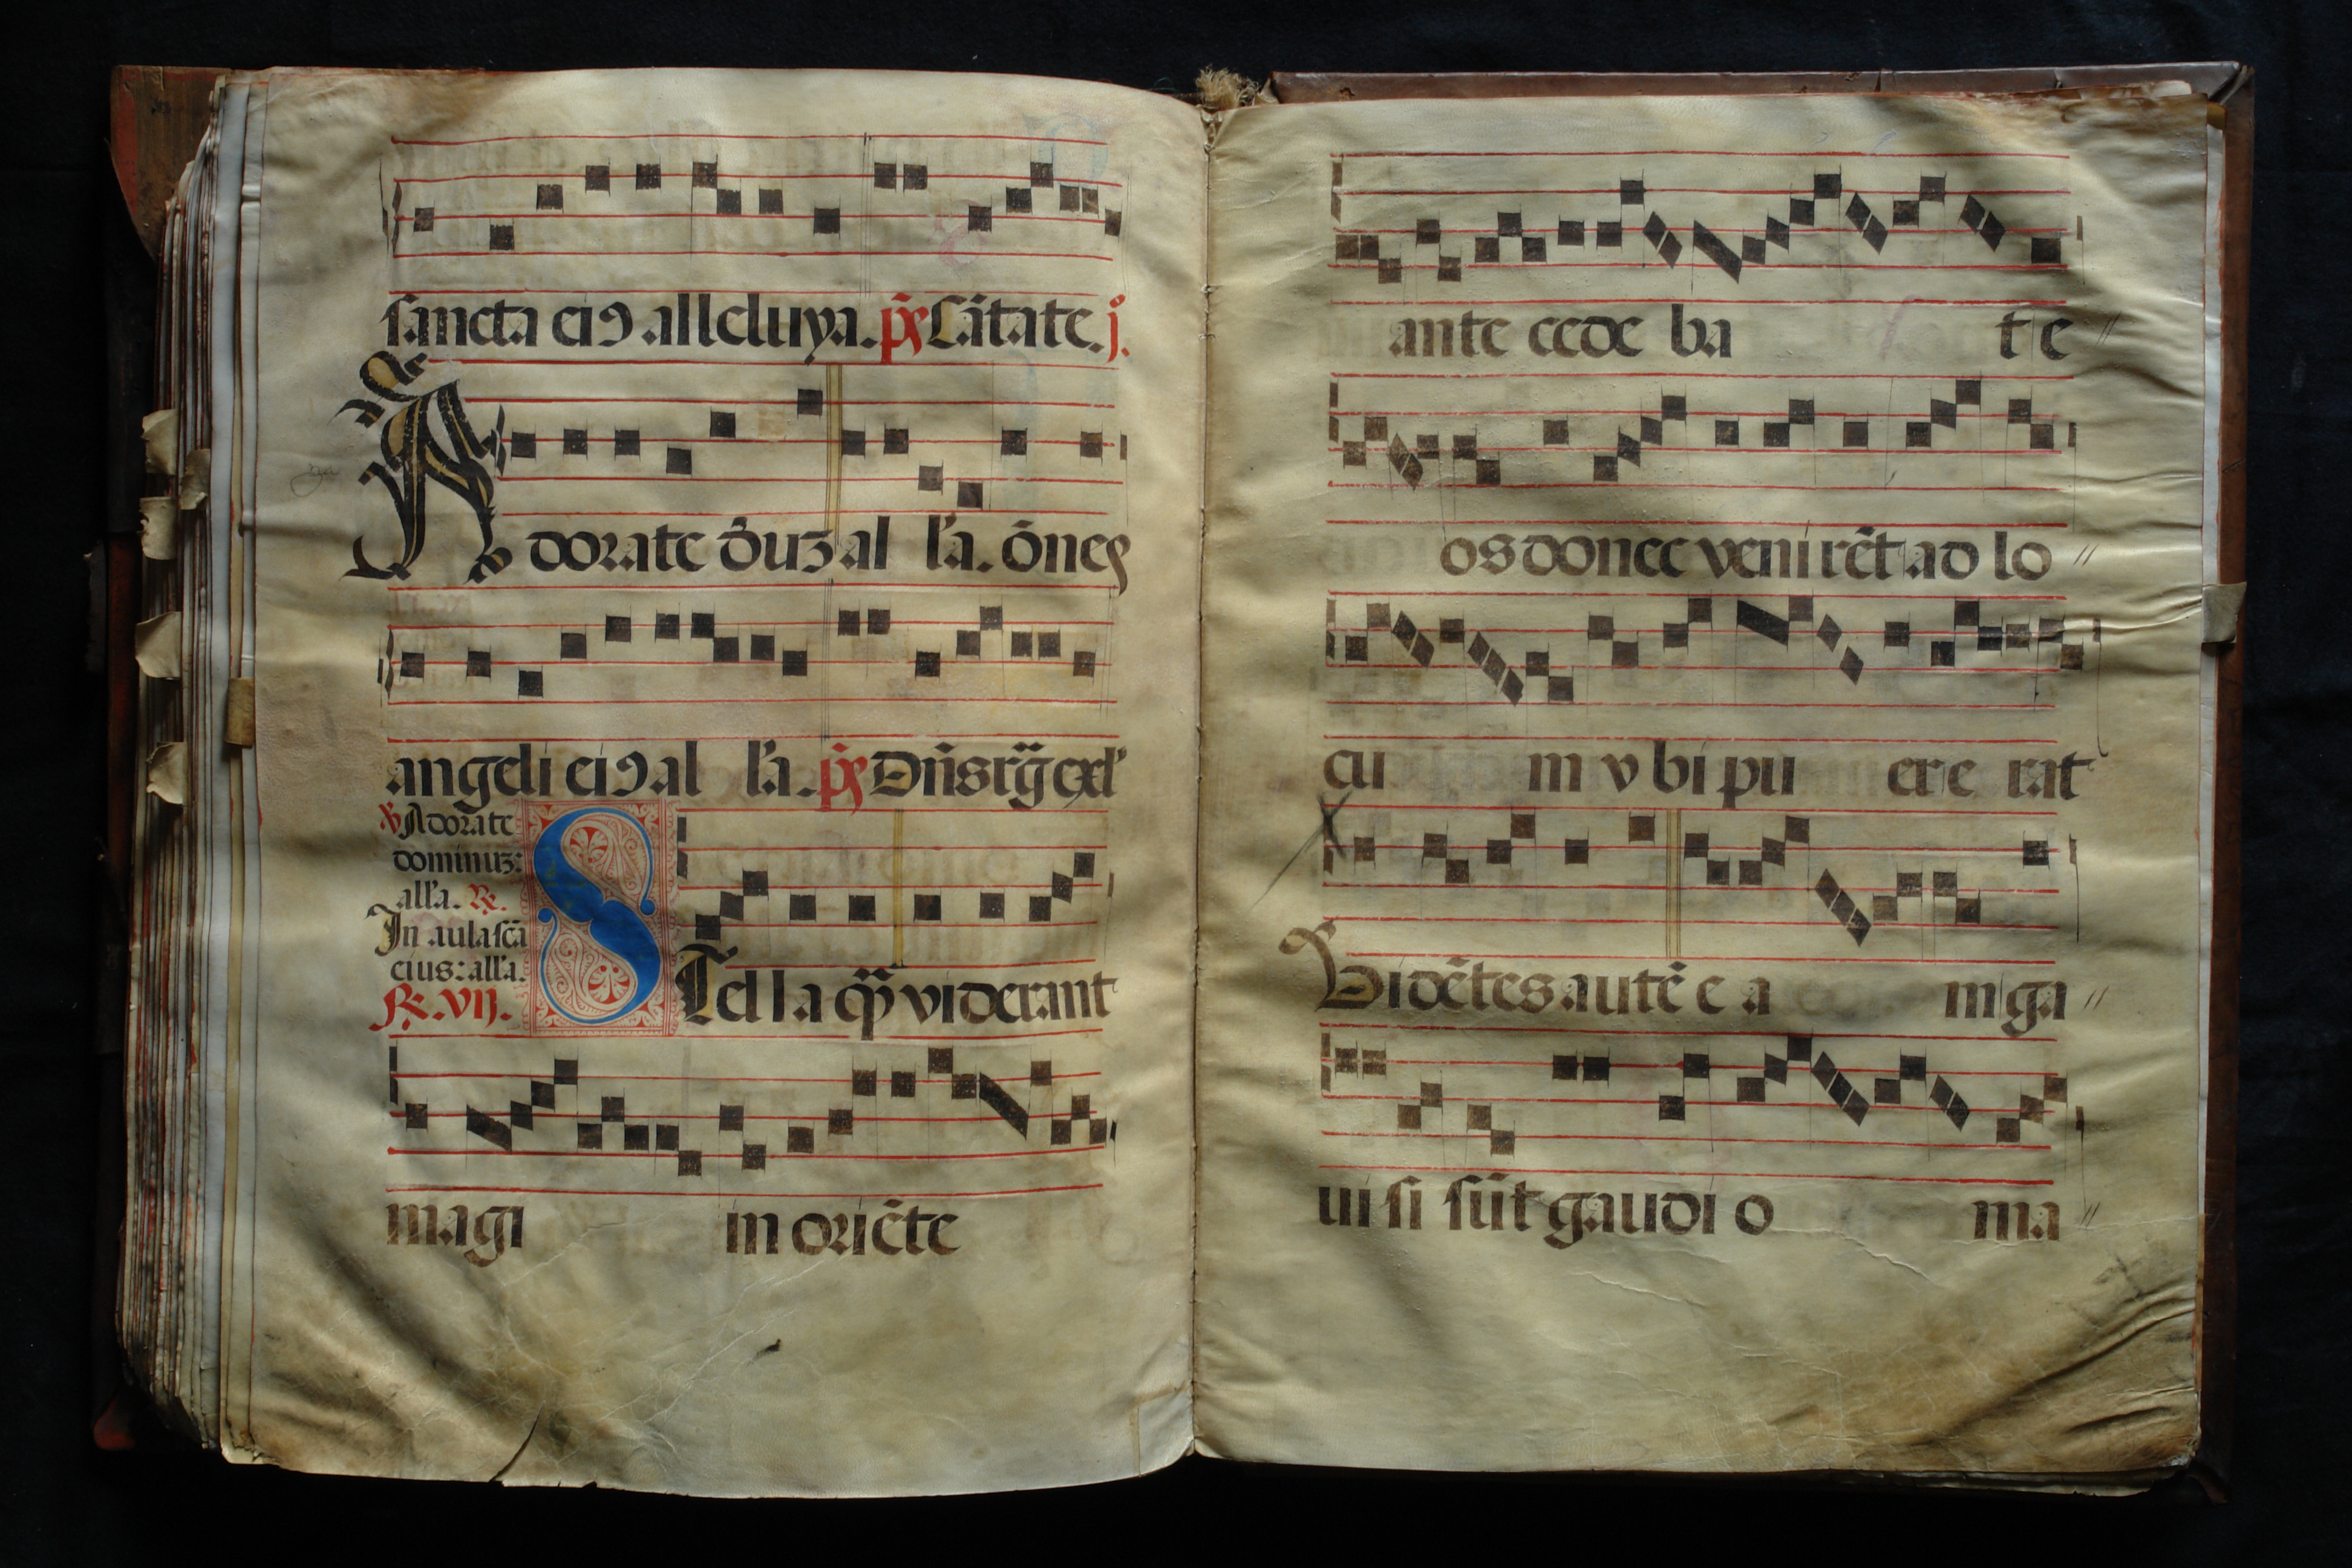 sancta ei9 alleluya. ps Cātate. j.
Adorate dn̄uz al l'a. ōnes
angeli ei9 al l'a. ps Dn̄s rḡ exl'
℣ Adorate
dominuz:
all'a. ℟.
In aula scā
eius: all'a.
℟. VIJ.
STella quā viderant
magi in oriēte
ante cede ba t e
os donec venirēt ad lo
cu m v bi pu er e rat
Vidētes autē e a m ga
ui si sūt gaudi o ma